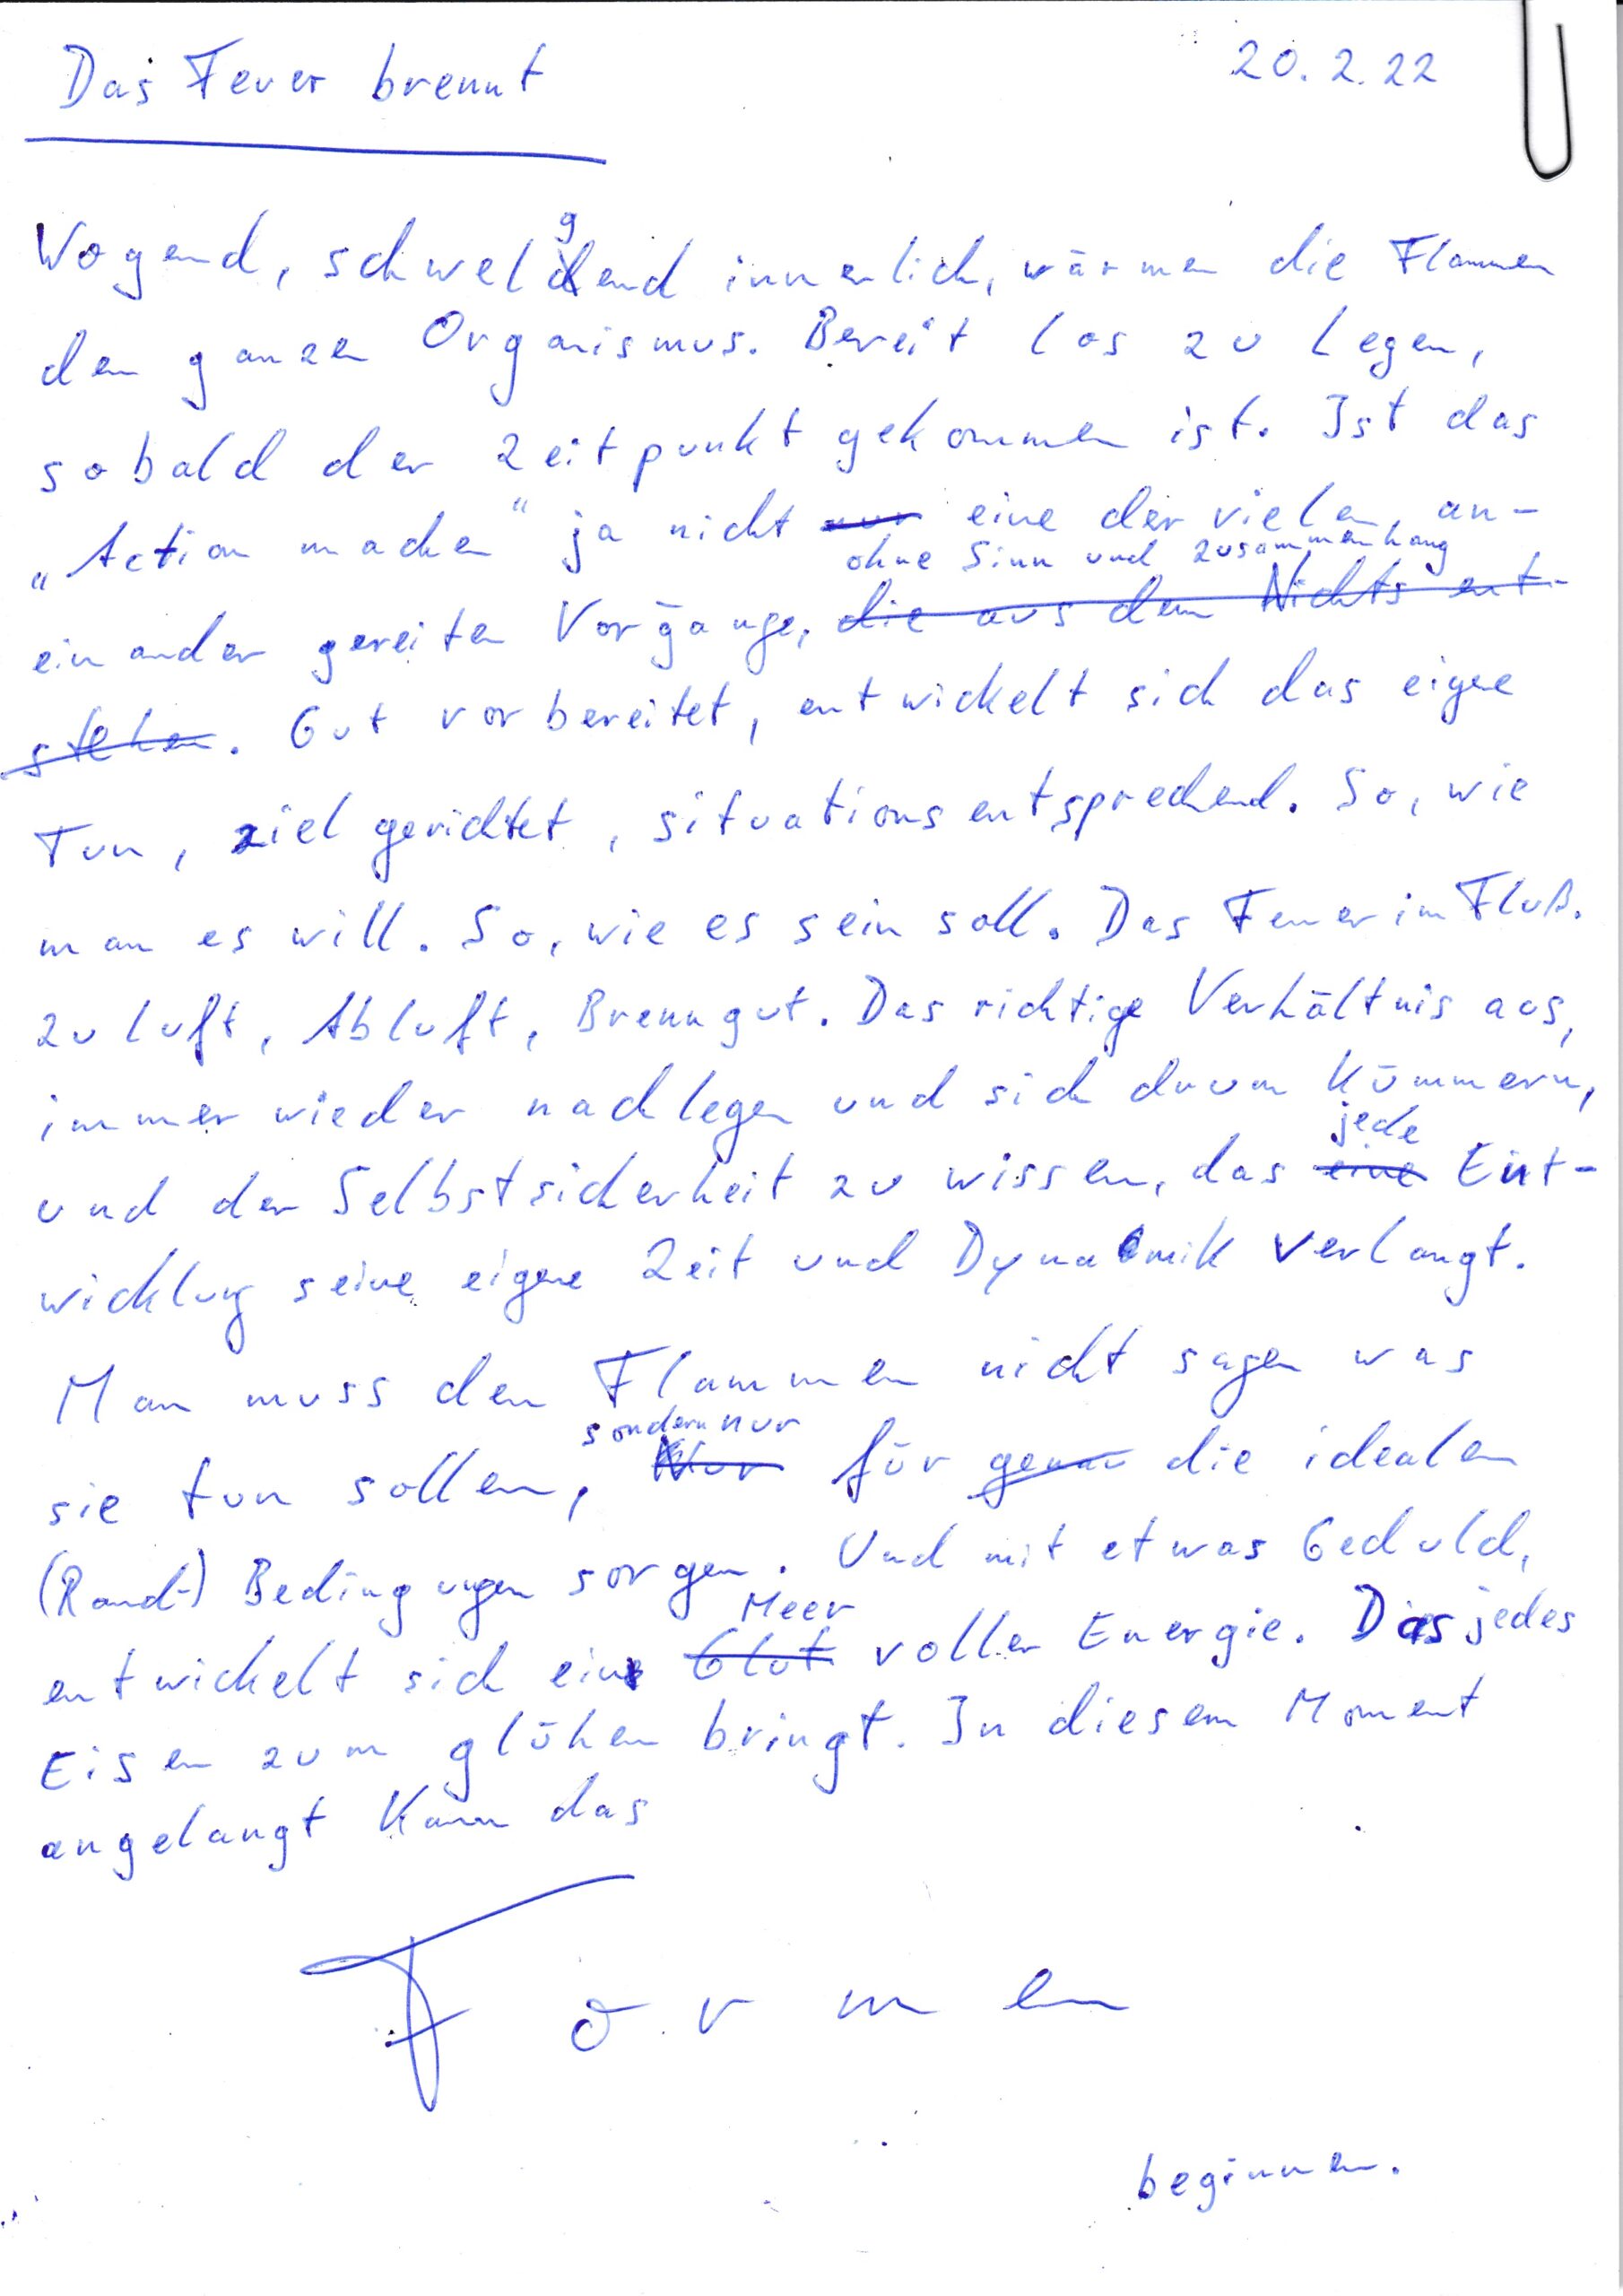 Das Feuer brennt 20.2.22
Wogend, schwelgend innerlich, wärmen die Flammen
den ganzen Organismus. Bereit los zu legen,
sobald der Zeitpunkt gekommen ist. Ist das
„Action machen" ja nicht nur eine der vielen, an-
ohne Sinn und Zusammenhang
einander gereiten Vorgänge, die aus dem Nichts ent-
stehen. Gut vorbereitet, entwickelt sich das eigene
Tun, zielgerichtet, situationsentsprechend. So, wie
man es will. So, wie es sein soll. Das Feuer im Fluß.
Zuluft, Abluft, Brenngut. Das richtige Verhältnis aus,
immer wieder nachlegen und sich darum kümmern,
jede
und der Selbstsicherheit zu wissen, das eine Ent-
wicklung seine eigene Zeit und Dynamik verlangt.
Man muss den Flammen nicht sagen was
sondern nur
sie tun sollen, Nur für genau die idealen
(Rand-) Bedingungen sorgen. Und mit etwas Geduld,
Meer
entwickelt sich ein Glut voller Energie. Das jedes
Eisen zum glühen bringt. In diesem Moment
angelangt kann das
Formen
beginnen.